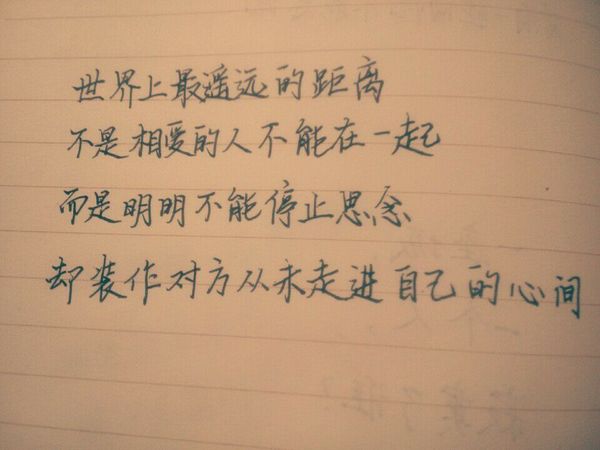 世界上最遥远的距离
不是相爱的人不能在一起
而是明明不能停止思念
却装作对方从未走进自己的心间